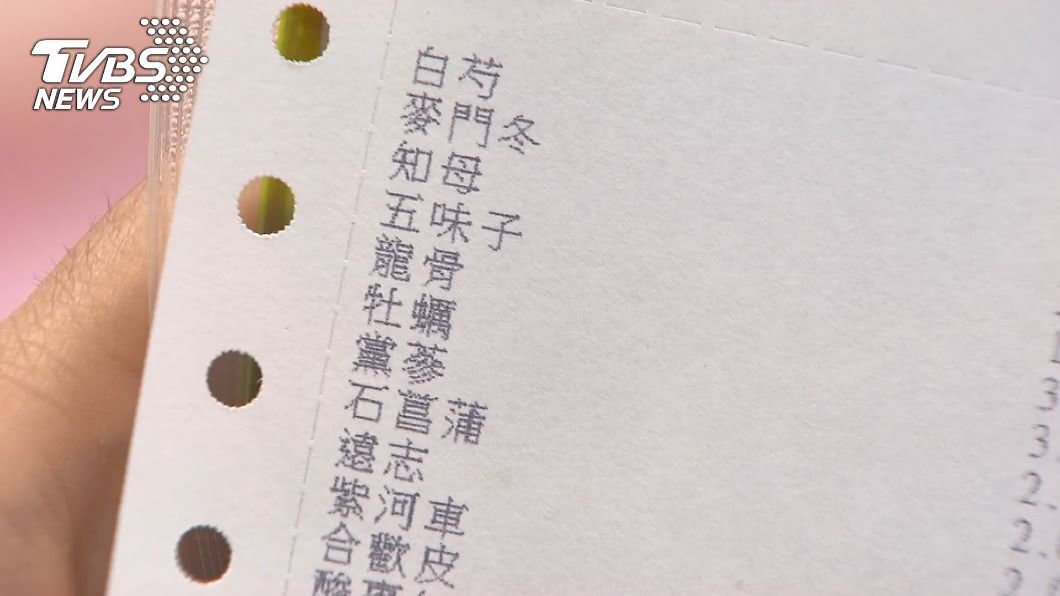 TVBS
NEWS
白芍
麥門冬
知母
五味子
龍骨
牡蠣
黨蔘
石菖蒲
遠志
紫河車
合歡皮
3
3.
2.
2.